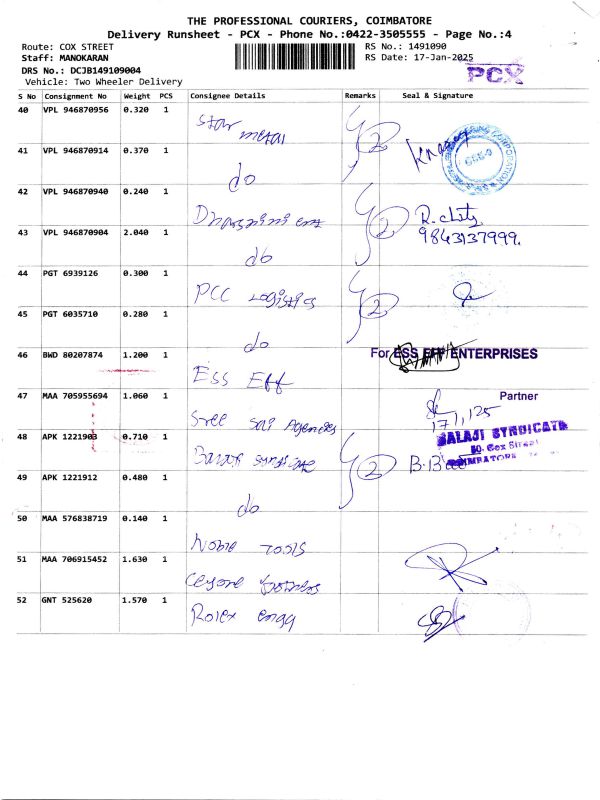 THE PROFESSIONAL COURIERS, COIMBATORE
Delivery Runsheet - PCX - Phone No.:0422-3505555 - Page No.:4
Route: COX STREET
RS No.: 1491090
Staff: MANOKARAN
RS Date: 17-Jan-2025
DRS No.: DCJB149109004
PCX
Vehicle: Two Wheeler Delivery
S No Consignment No Weight PCS Consignee Details Remarks Seal & Signature
40 VPL 946870956 0.320 1 Star metal
2
41 VPL 946870914 0.370 1 do
42 VPL 946870940 0.240 1
R. chitz
43 VPL 946870904 2.040 1 do 2
9843137999.
44 PGT 6939126 0.300 1 PCC Logistics
2
45 PGT 6035710 0.280 1 do
46 BWD 80207874 1.200 1 Ess Eff
For ESS EFF ENTERPRISES
Partner
47 MAA 705955694 1.060 1 Sree Sai Agencies
48 APK 1221903 0.710 1 Balaji Syndicate 2
BALAJI SYNDICATE
Cox Street
COIMBATORE
49 APK 1221912 0.480 1 do
50 MAA 576838719 0.140 1 Noble Tools
51 MAA 706915452 1.630 1
52 GNT 525620 1.570 1 Rolex engg